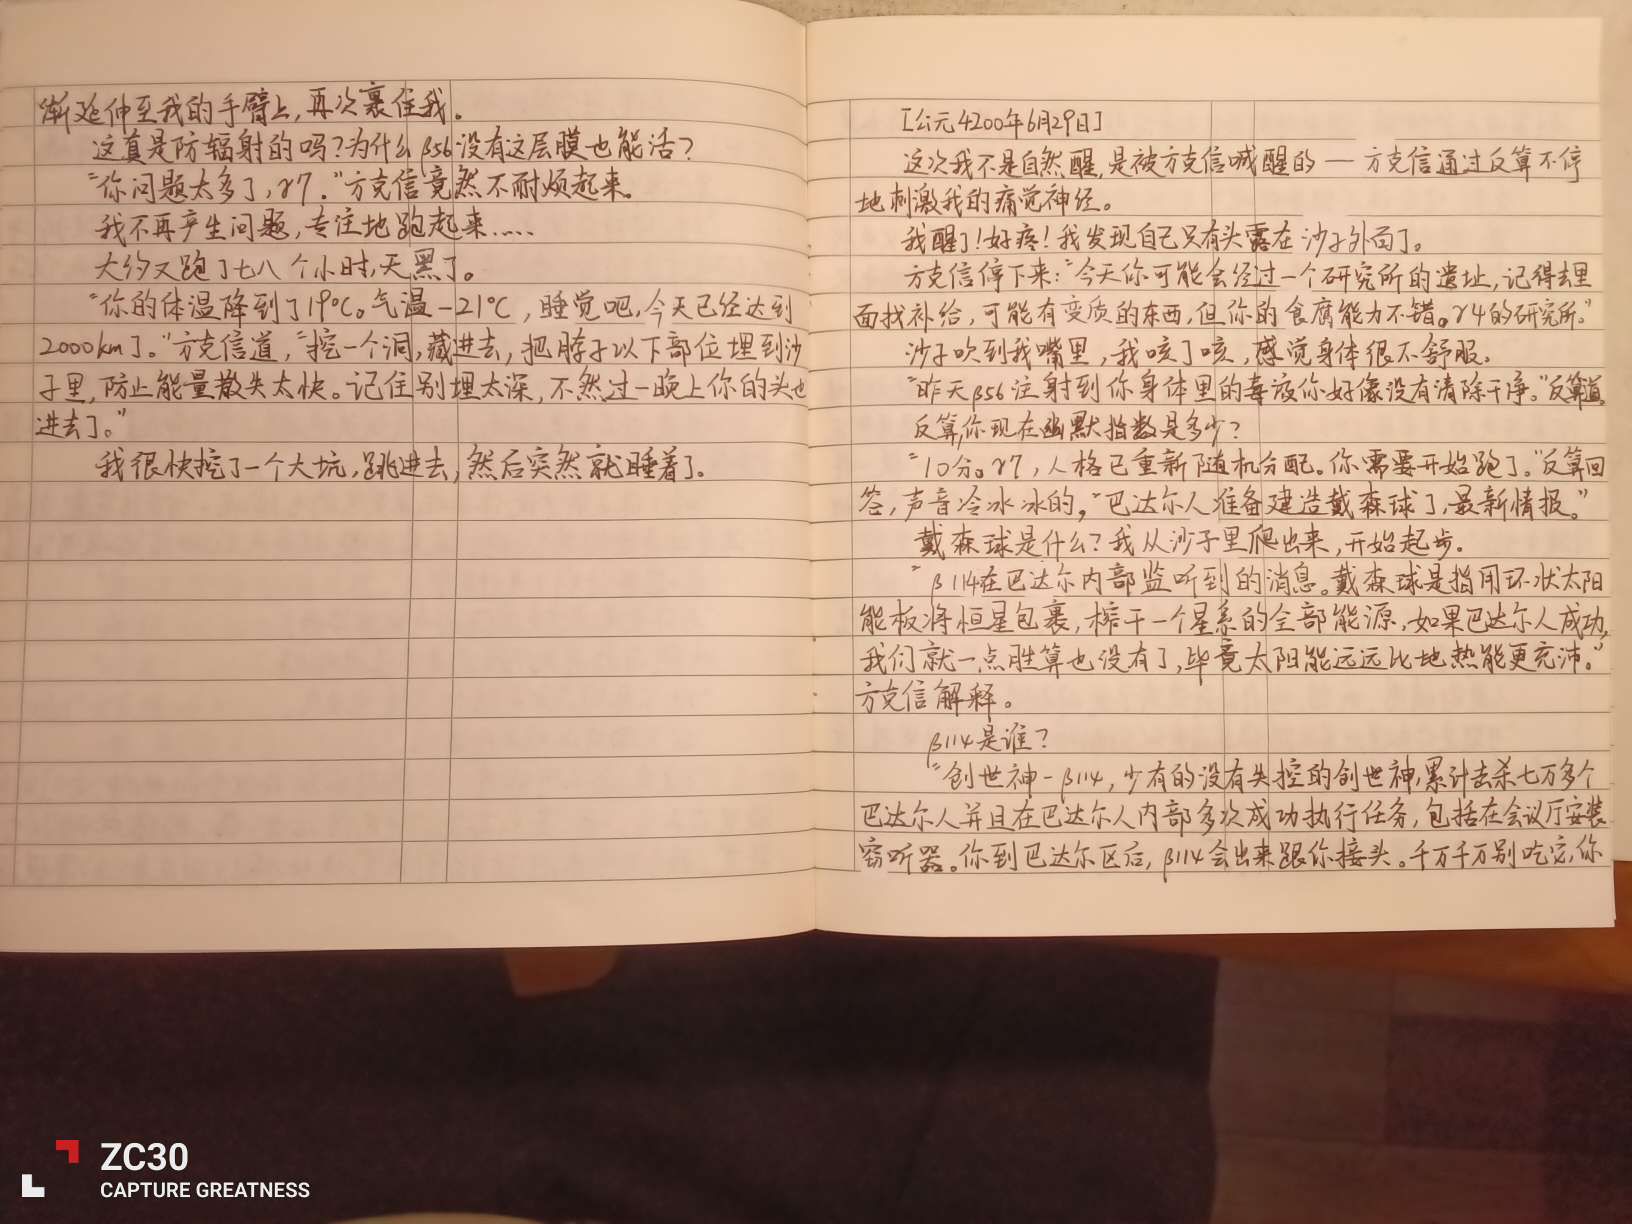 渐延伸至我的手臂上,再次裹住我。
这真是防辐射的吗?为什么β56没有这层膜也能活?
“你问题太多了,γ7。”方克信竟然不耐烦起来。
我不再产生问题,专注地跑起来……
大约又跑了七八个小时,天黑了。
“你的体温降到了19℃。气温-21℃,睡觉吧,今天已经达到
2000km了。”方克信道,“挖一个洞,藏进去,把脖子以下部位埋到沙
子里,防止能量散失太快。记住别埋太深,不然过一晚上你的头也
进去了。”
我很快挖了一个大坑,跳进去,然后突然就睡着了。
[公元4200年6月29日]
这次我不是自然醒,是被方克信喊醒的—方克信通过反算不停
地刺激我的痛觉神经。
我醒了!好疼!我发现自己只有头露在沙子外面了。
方克信停下来:“今天你可能会经过一个研究所的遗址,记得去里
面找补给,可能有变质的东西,但你的食腐能力不错。γ4的研究所。”
沙子吹到我嘴里,我咳了咳,感觉身体很不舒服。
“昨天β56注射到你身体里的毒液你好像没有清除干净。”反算道。
反算,你现在幽默指数是多少?
“10分。γ7,人格已重新随机分配。你需要开始跑了。”反算回
答,声音冷冰冰的,“巴达尔人准备建造戴森球了,最新情报。”
戴森球是什么?我从沙子里爬出来,开始起步。
“β114在巴达尔内部监听到的消息。戴森球是指用环状太阳
能板将恒星包裹,榨干一个星系的全部能源,如果巴达尔人成功,
我们就一点胜算也没有了,毕竟太阳能远远比地热能更充沛。”
方克信解释。
β114是谁?
“创世神-β114,少有的没有失控的创世神,累计击杀七万多个
巴达尔人并且在巴达尔人内部多次成功执行任务,包括在会议厅安装
窃听器。你到巴达尔区后,β114会出来跟你接头。千万千万别吃它,你
ZC30
CAPTURE GREATNESS